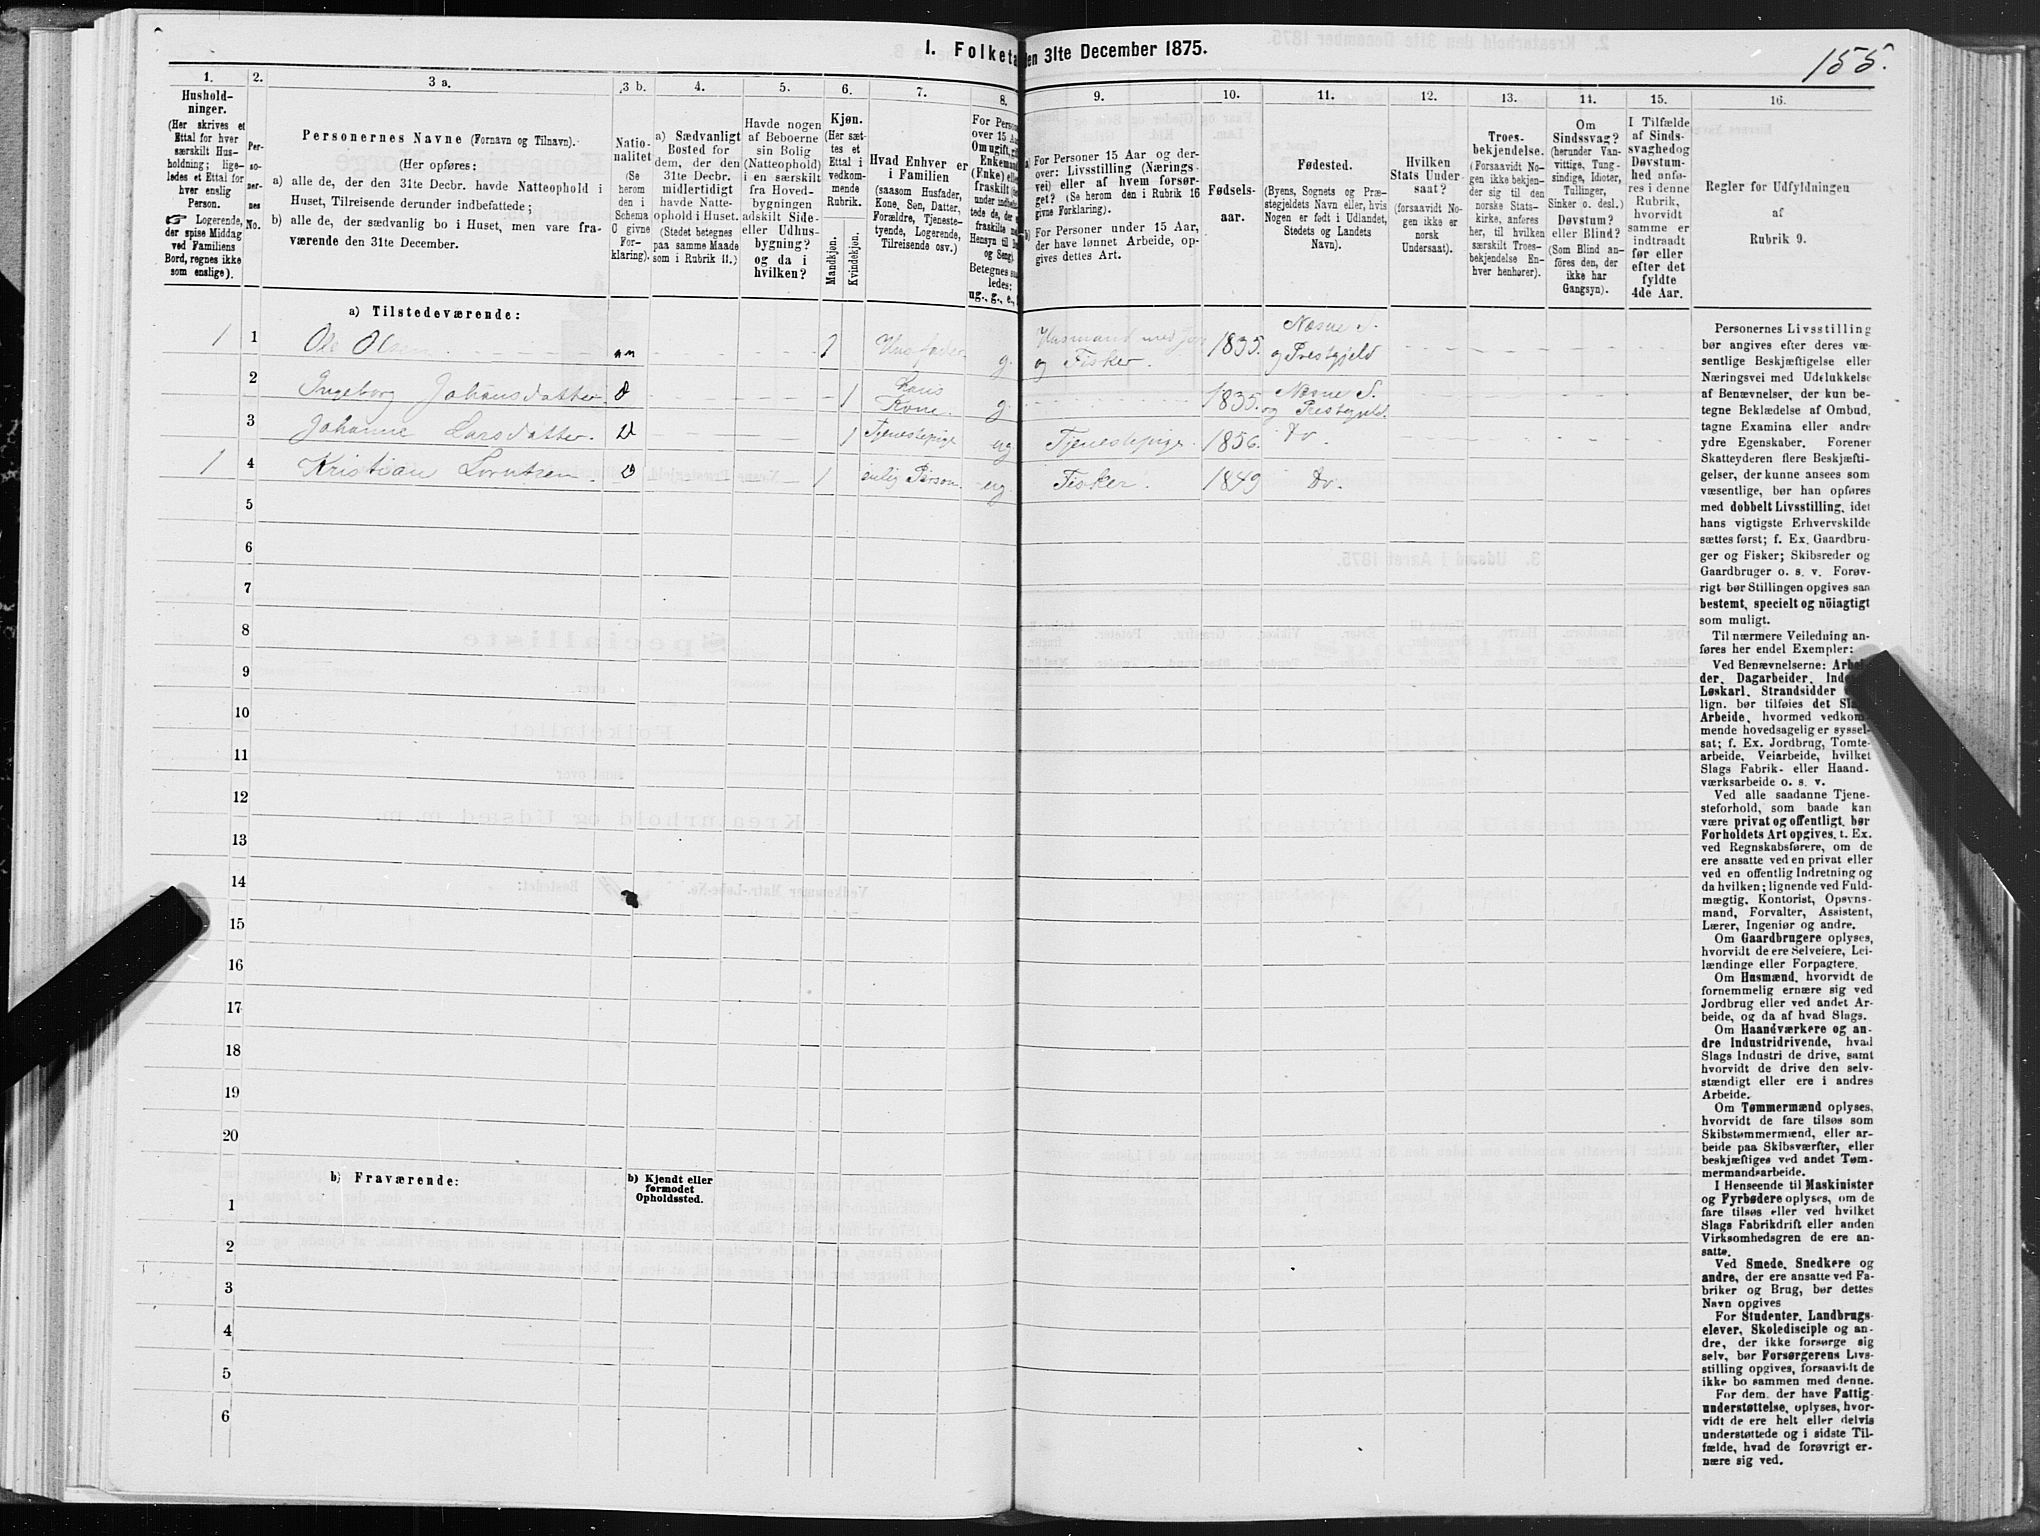 1. Folketa
en 31te December 1875.
155.
1.
Hushold-
ninger.
(Her skrives et
Ettal for hver
særskilt Hus-
holdning; lige-
ledes et Ettal for
hver enslig
Person.
☞ Logerende,
der spise Middag
ved Familiens
Bord, regnes ikke
som enslige).
2.
Per-
so-
ner-
nes
No.
3 a.
Personernes Navne (Fornavn og Tilnavn).
(Her opføres:
a) alle de, der den 31te Decbr. havde Natteophold i
Huset, Tilreisende derunder indbefattede;
b) alle de, der sædvanlig bo i Huset, men vare fra-
værende den 31te December.
3 b.
Natio-
nalitet
(Se
herom
den i
Schema
O givne
For-
klaring).
4.
a) Sædvanligt
Bosted for
dem, der den
31te Decbr.
midlertidigt
havde Natte-
ophold i Huset.
(Stedet betegnes
paa samme Maade
som i Rubrik 11.)
5.
Havde nogen
af Beboerne
sin Bolig
(Natteophold)
i en særskilt
fra Hoved-
bygningen
adskilt Side-
eller Udhus-
bygning?
og da i
hvilken?
6.
Kjøn.
(Her sæt-
tes et
Ettal i
vedkom-
mende
Rubrik.
Mandkjøn.
Kvindekjøn.
7.
Hvad Enhver er
i Familien
(saasom Husfader,
Kone, Søn, Datter,
Forældre, Tjeneste-
tyende, Logerende,
Tilreisende osv.)
8.
For Person
over 15 Aa
Om ugift, gif
Enkemand
(Enke) elle
fraskilt
under indbe
tede de, der
fraskilte
Hensyn til
og Seng).
Betegnes sa
ledes:
ug., g., e.,
9.
a) For Personer 15 Aar og der-
over: Livsstilling (Nærings-
vei) eller af hvem forsør-
get? (Se herom den i Rubrik 16
givne Forklaring).
b) For Personer under 15 Aar,
der have lønnet Arbeide, op-
gives dettes Art.
10.
Fødsels-
aar.
11.
Fødested.
(Byens, Sognets og Præ-
stegjeldets Navn eller, hvis
Nogen er født i Udlandet,
Stedets og Landets
Navn).
12.
Hvilken
Stats Under-
saat?
(forsaavidt No-
gen ikke er
norsk
Undersaat).
13.
Troes-
bekjendelse.
(Forsaavidt No-
gen ikke bekjen-
der sig til den
norske Stats-
kirke, anføres
her, til hvilken
særskilt Troes-
bekjendelse En-
hver henhører).
14.
Om
Sindssvag?
(herunder Van-
vittige, Tung-
sindige, Idioter,
Tullinger,
Sinker o. desl.)
Døvstum?
eller Blind?
(Som Blind an-
føres den, der
ikke har
Gangsyn).
15.
I Tilfælde
af Sinds-
svaghed og
Døvstum-
hed anfø-
res i denne
Rubrik,
hvorvidt
samme er
indtraadt
før eller
efter det
fyldte
4de Aar.
16.
Regler for Udfyldningen
af
Rubrik 9.
a) Tilstedeværende:
1 1 Ole Olsen nn 1 Husfader g. Husmand med Jord og Fisker. 1835. Næsne S. og Prestgjeld
2 Ingeborg Johansdatter 1 Hans Kone g. 1835. Næsne S. og Prestegjeld.
3 Johanne Larsdatter. 1 Tjenestepige ug. Tjenestepige. 1856. Do.
1 4 Kristian Lorntsen 1 enlig Person. ug. Fisker. 1849 Do.
5
6
7
8
9
10
11
12
13
14
15
16
17
18
19
20
b) Fraværende:
b) Kjendt eller
formodet
Opholdssted.
1
2
3
4
5
6
Personernes Livsstilling
bør angives efter deres væ-
sentlige Beskjæftigelse eller
Næringsvei med Udelukkelse
af Benævnelser, der kun be-
tegne Beklædelse af Ombud,
tagne Examina eller andre
ydre Egenskaber. Forener
Skatteyderen flere Beskjæfti-
gelser, der kunne ansees som
væsentlige, bør han opføres
med dobbelt Livsstilling, idet
hans vigtigste Erhvervskilde
sættes først; f. Ex. Gaardbru-
ger og Fisker; Skibsreder og
Gaardbruger o. s. v. Forøv-
rigt bør Stillingen opgives saa
bestemt, specielt og nöiagtigt
som muligt.
Til nærmere Veiledning an-
føres her endel Exempler:
Ved Benævnelserne: Arbei-
der, Dagarbeider, Inde
Løskarl, Strandsidder
lign. bør tilføies det Sla
Arbeide, hvormed vedkom-
mende hovedsagelig er syssel-
sat; f. Ex. Jordbrug, Tomte-
arbeide, Veiarbeide, hvilket
Slags Fabrik- eller Haand-
værksarbeide o. s. v.
Ved alle saadanne Tjene-
steforhold, som baade kan
være privat og offentligt, bør
Forholdets Art opgives, t. Ex.
ved Regnskabsførere, om de
ere ansatte ved en privat eller
ved en offentlig Indretning og
da hvilken; lignende ved Fuld-
mægtig, Kontorist, Opsyns-
mand, Forvalter, Assistent,
Lærer, Ingeniør og andre.
Om Gaardbrugere oplyses,
hvorvidt de ere Selveiere, Lei-
lændinge eller Forpagtere.
Om Husmænd, hvorvidt de
fornemmelig ernære sig ved
Jordbrug eller ved andet Ar-
beide, og da af hvad Slags.
Om Haandværkere og an-
dre Industridrivende, hvad
Slags Industri de drive, samt
hvorvidt de drive den selv-
stændigt eller ere i andres
Arbeide.
Om Tømmermænd oplyses,
hvorvidt de fare tilsøs som
Skibstømmermænd, eller ar-
beide paa Skibsværfter, eller
beskjæftiges ved andet Tøm-
mermandsarbeide.
I Henseende til Maskinister
og Fyrbødere oplyses, om de
fare tilsøs eller ved hvilket
Slags Fabrikdrift eller anden
Virksomhedsgren de ere an-
satte.
Ved Smede, Snedkere og
andre, der ere ansatte ved Fa-
briker og Brug, bør dettes
Navn opgives
For Studenter, Landbrugs-
elever, Skoledisciple og an-
dre, der ikke forsørge sig
selv, bør Forsørgerens Livs-
stilling opgives, forsaavidt de
ikke bo sammen med denne.
For dem, der have Fattig-
understøttelse, oplyses, hvor-
vidt de ere helt eller delvis
understøttede og i sidste Til-
fælde, hvad de forøvrigt er-
nære sig ved.